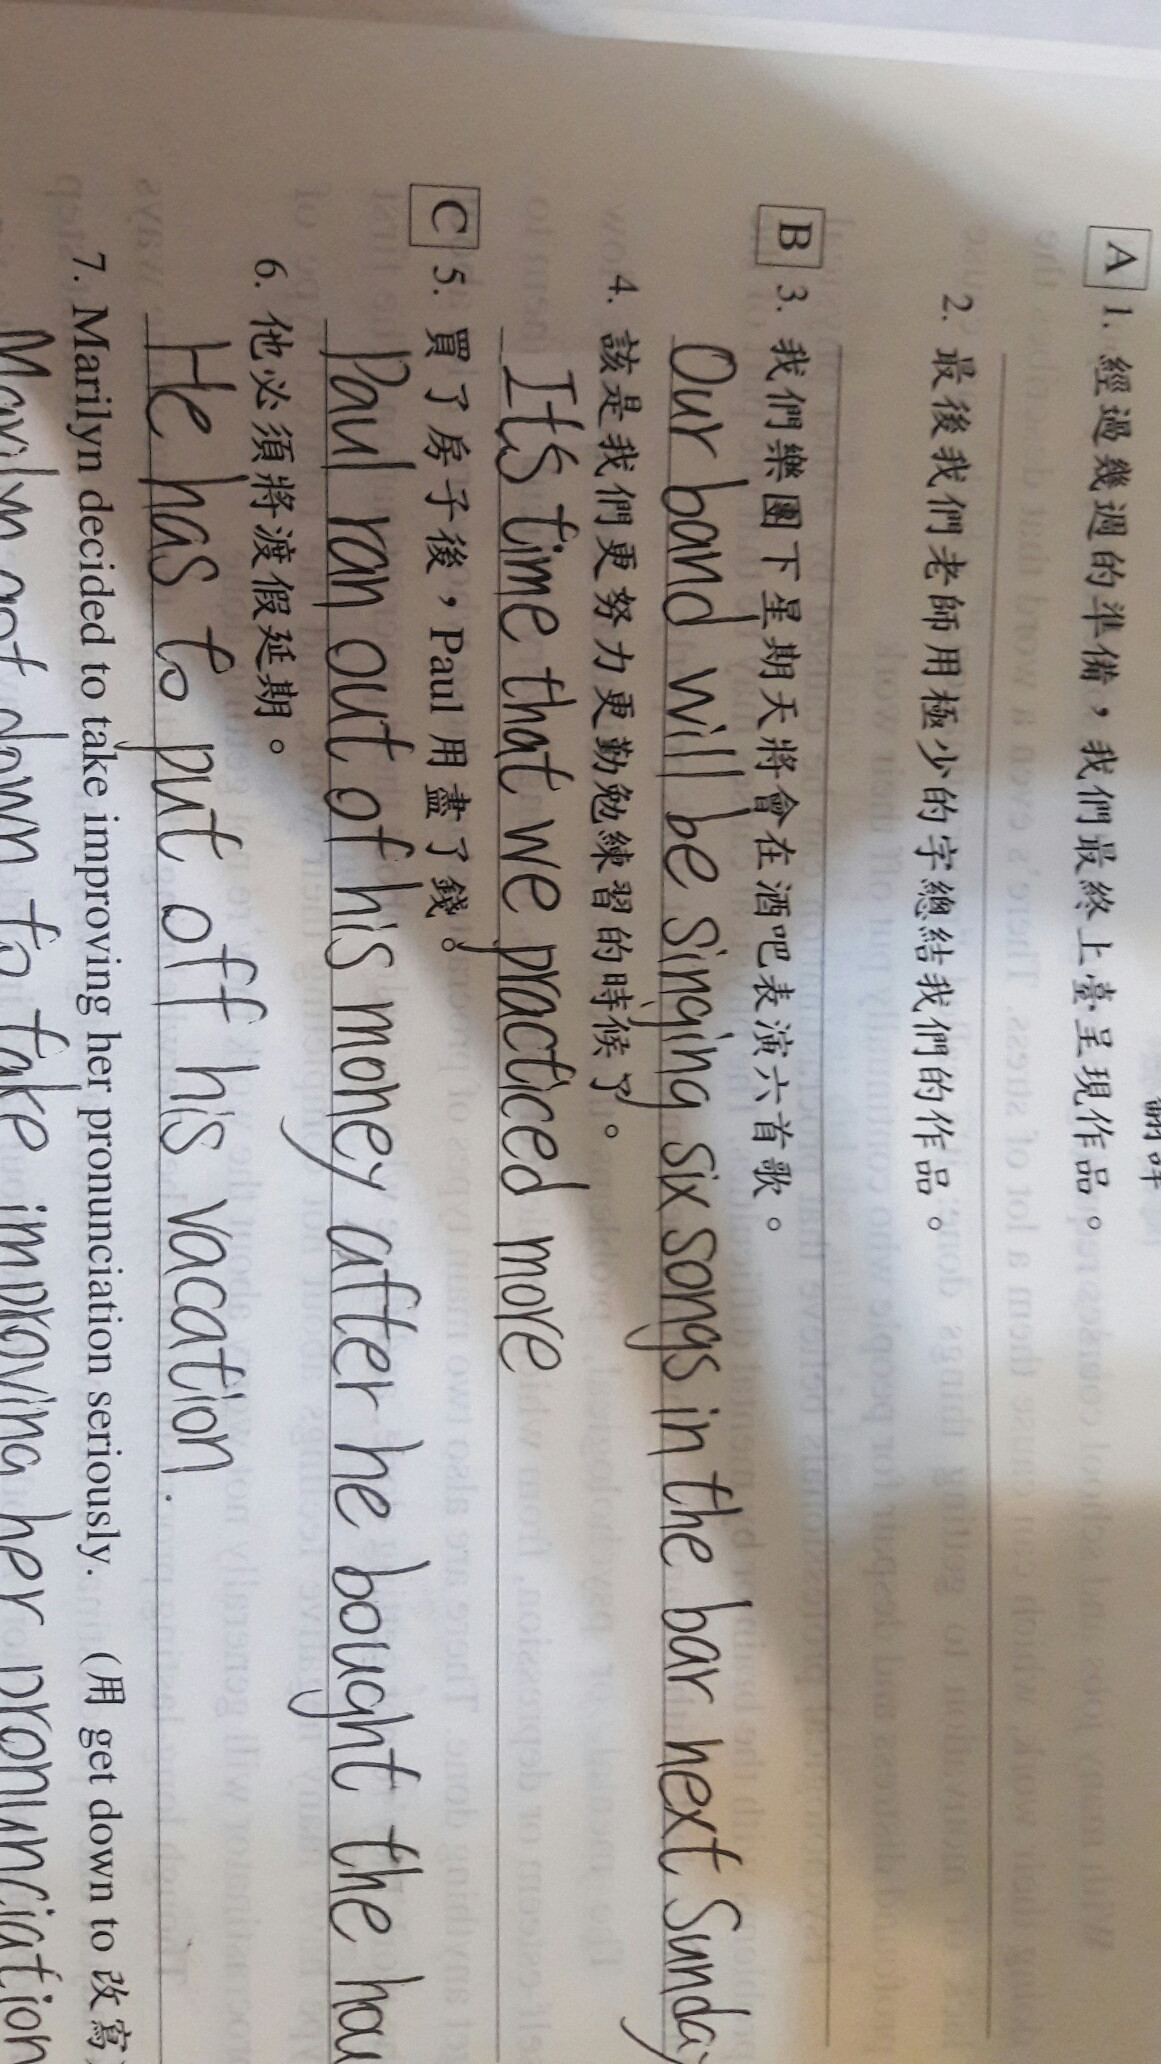 A 1. 經過幾週的準備，我們最終上臺呈現作品。
2. 最後我們老師用極少的字總結我們的作品。
B 3. 我們樂團下星期天將會在酒吧表演六首歌。
Our band will be singing six songs in the bar next Sunday
4. 該是我們更努力更勤勉練習的時候了。
It's time that we practiced more
C 5. 買了房子後，Paul 用盡了錢。
Paul ran out of his money after he bought the hou
6. 他必須將渡假延期。
He has to put off his vacation.
7. Marilyn decided to take improving her pronunciation seriously. (用 get down to 改寫)
Marilyn got down to take improving her pronunciation